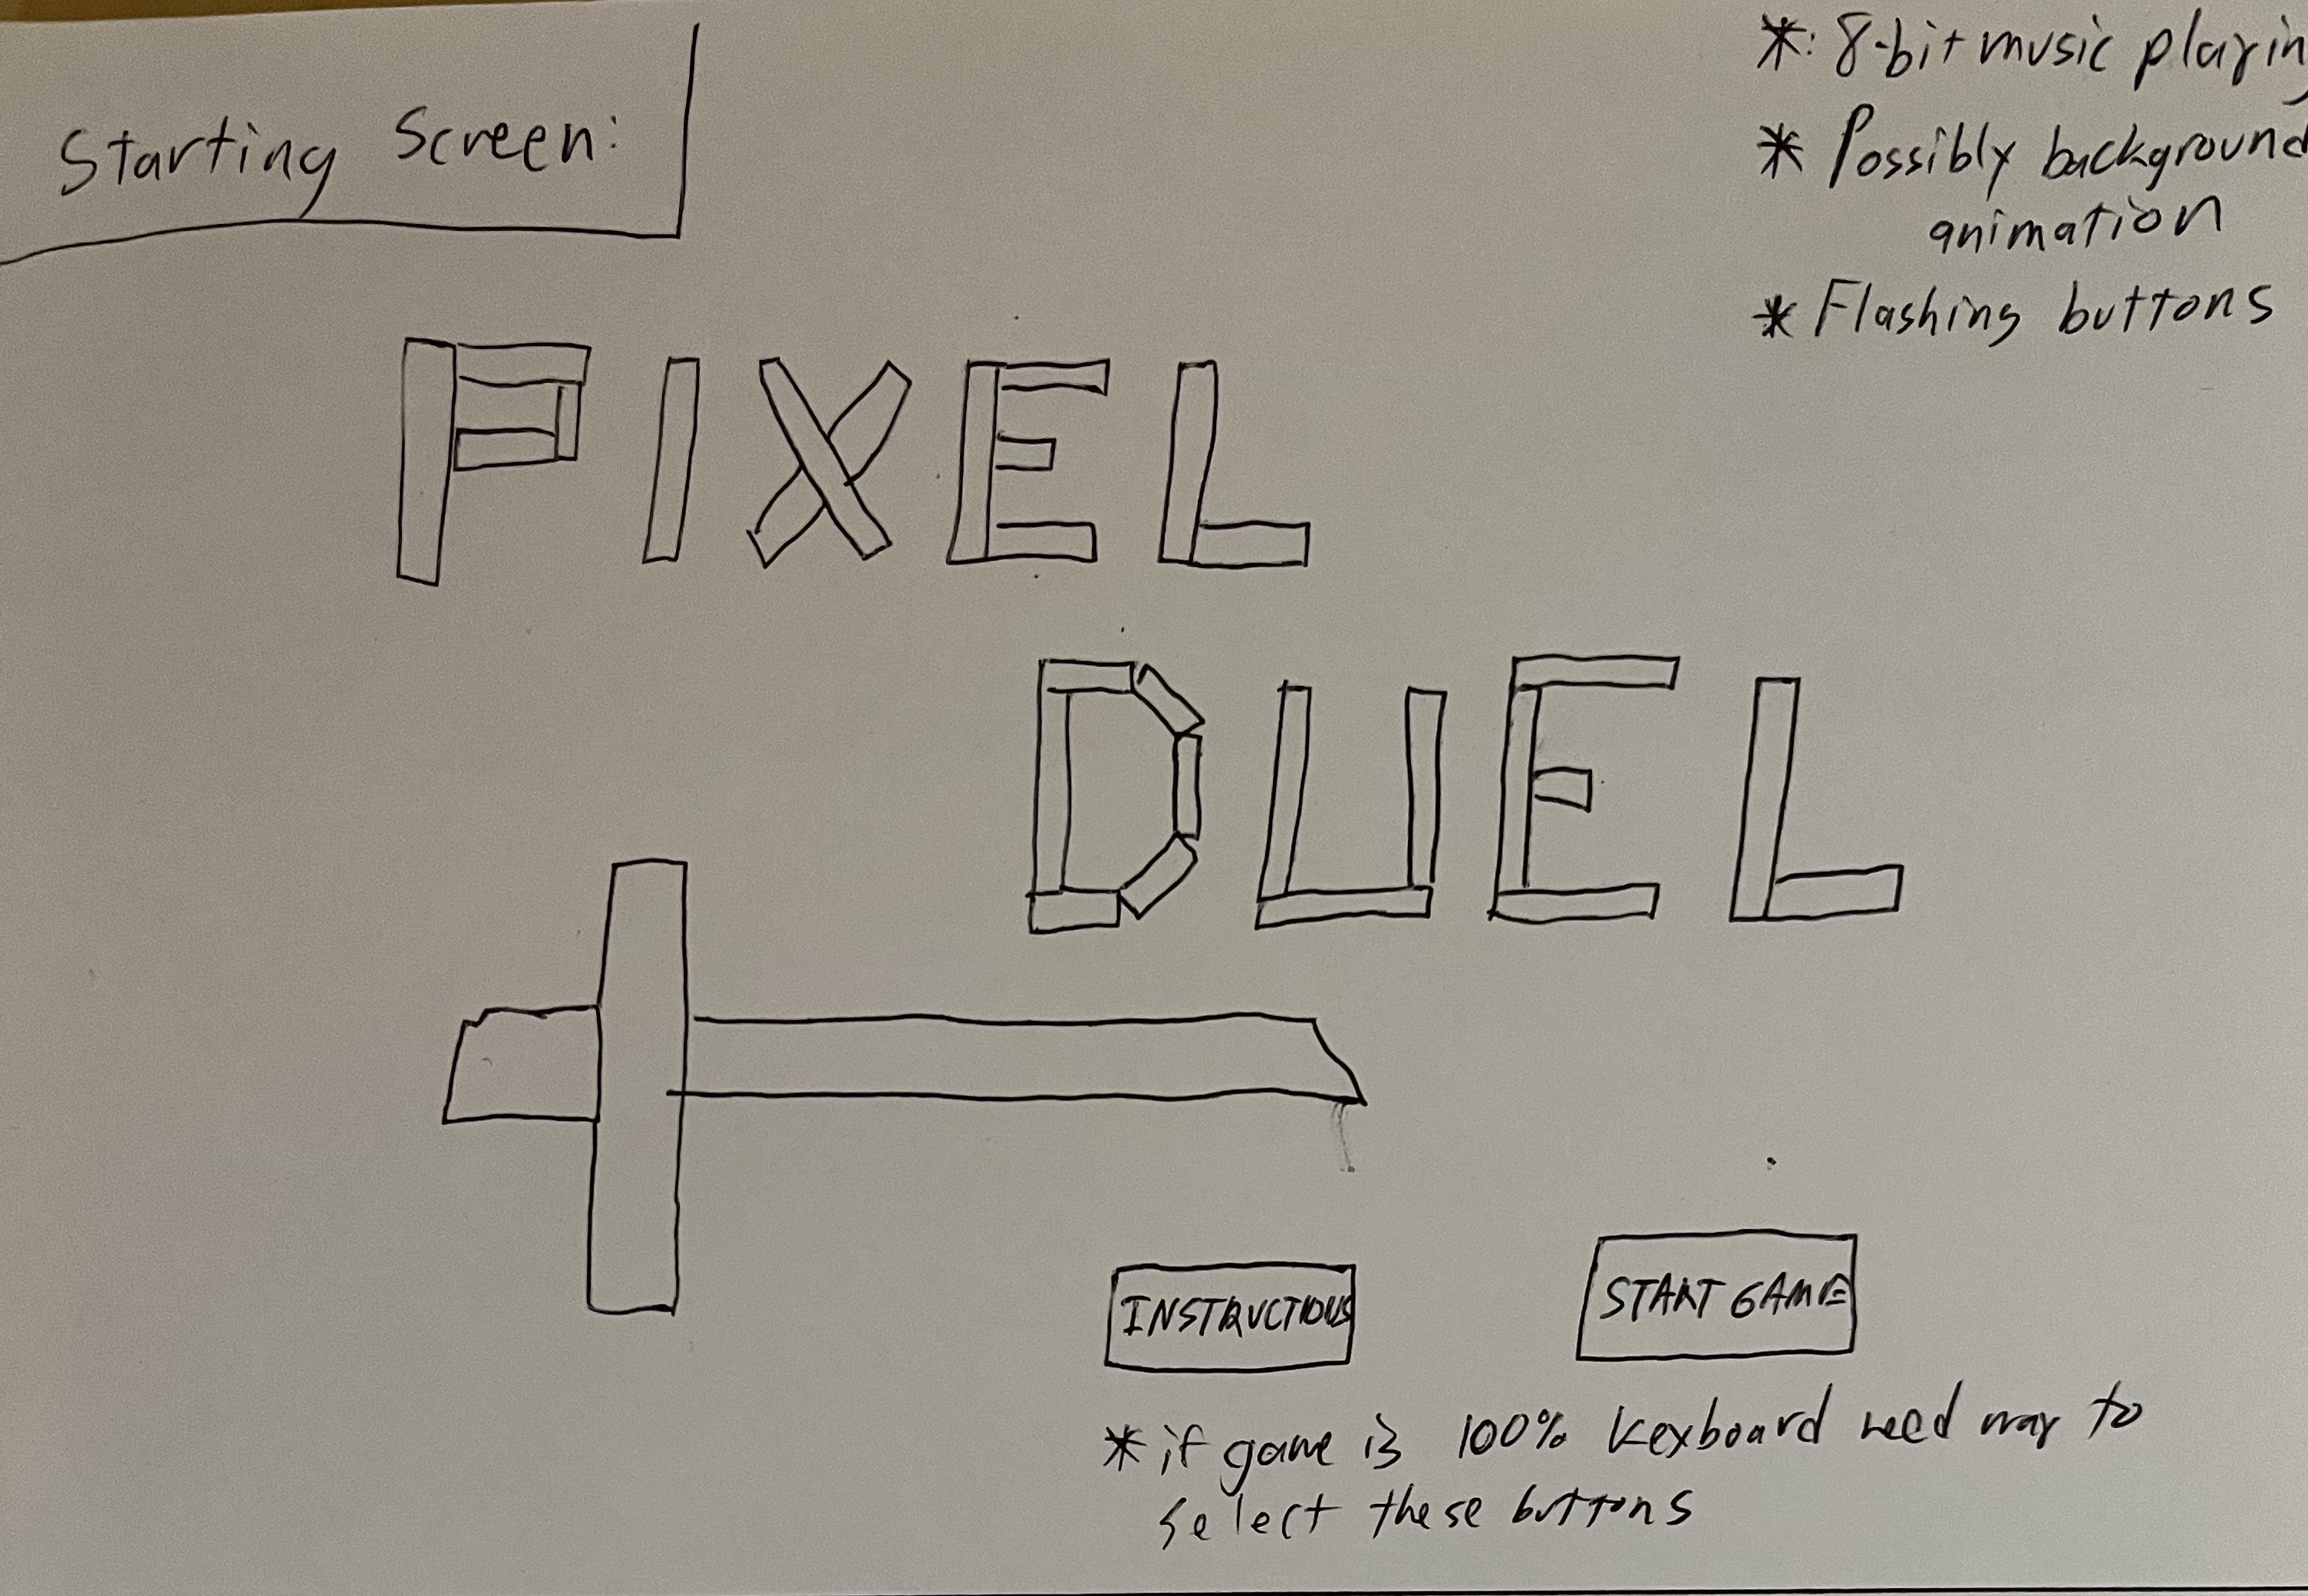 Starting Screen:
*: 8-bit music playin
* Possibly background
animation
* Flashing buttons
PIXEL
DUEL
INSTRUCTIONS
START GAME
* if game is 100% keyboard need way to
select these buttons